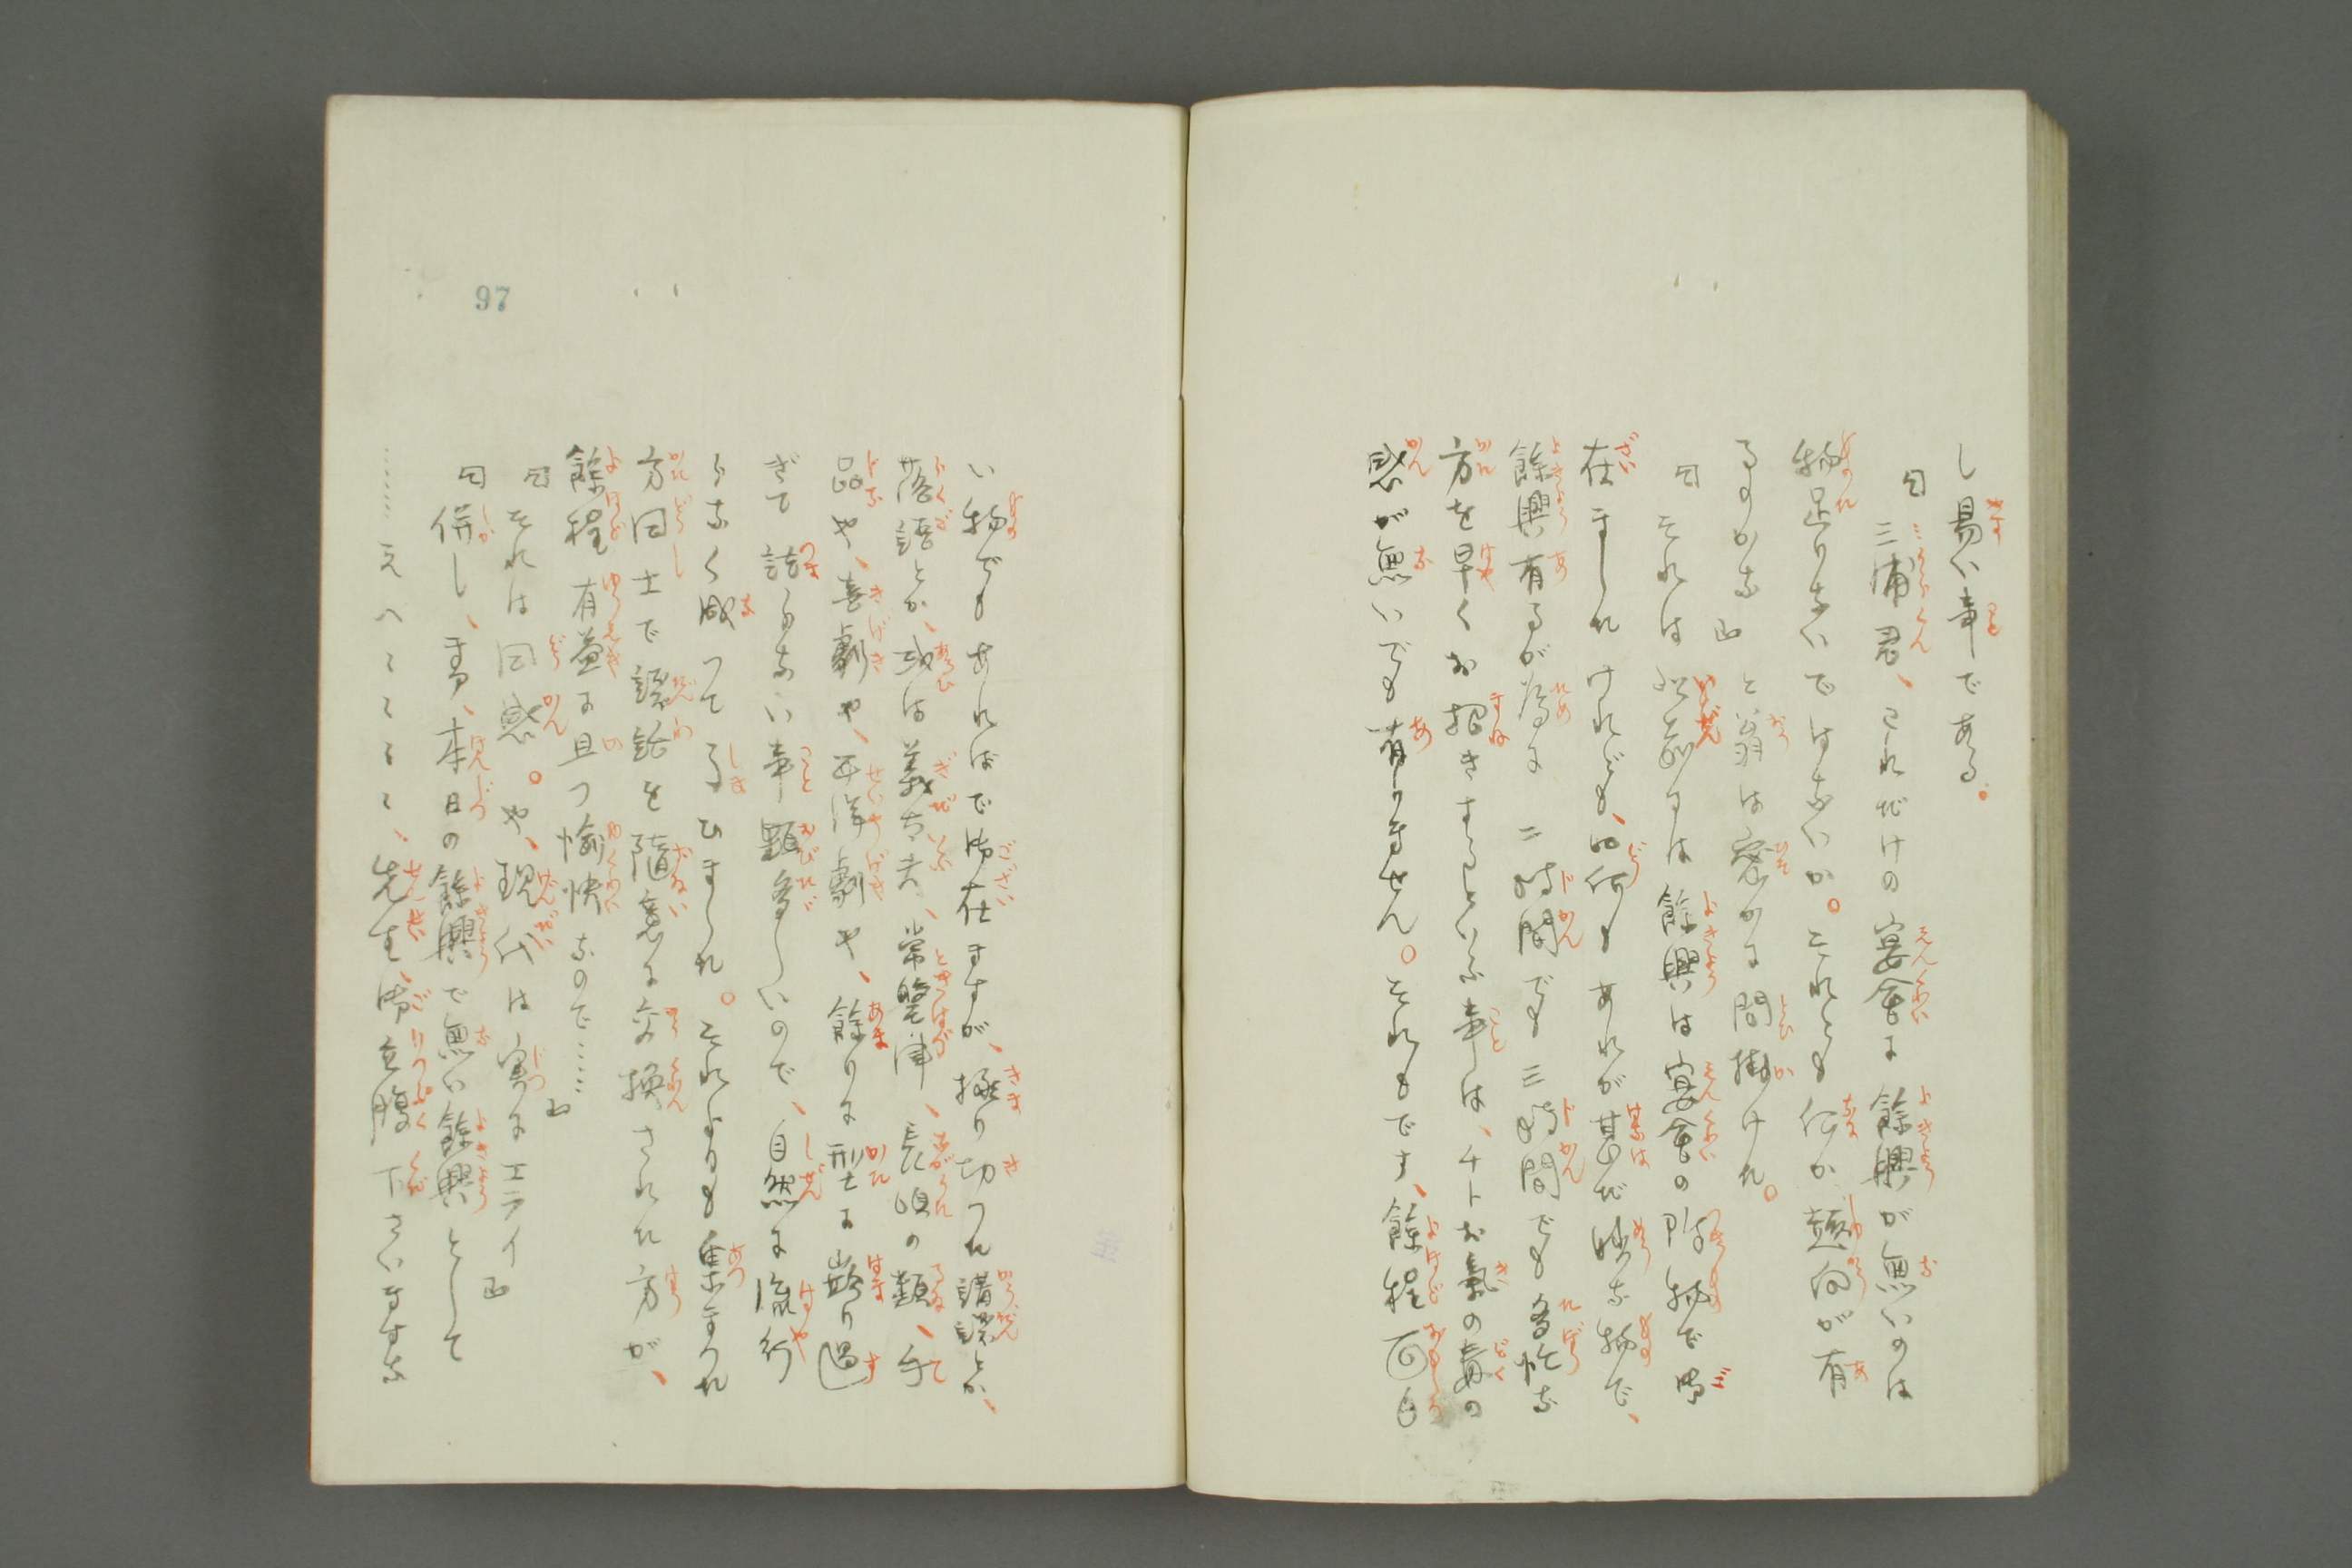 し易い事である。
「三浦君、これだけの宴會に餘興が無いのは
物足りないではないか。それとも何か趣向が有
るのかな」と翁は窓かに問掛けた。
「それは以前には餘興は宴會の附物で御
在ましたけれども、如何もあれが甚だ妙な物で、
餘興有るが為に二時間でも三時間でも多忙な
方を早くお招きするといふ事は、チトお氣の毒の
感が無いでも有りません。それもです、餘程面白
い物でもあればで御在ますが、極り切つた講談とか、
落語とか、或は義太夫、常磐津、長唄の類、手
品や、喜劇や、西洋劇や、餘りに型に嵌り過
ぎて詰らない事顕多しいので、自然に流行
らなく成つて了ひました。それよりも集まつた
方同士で談話を隨意に交換された方が、
餘程有益に且つ愉快なので……」
「それは同感。や、現代は実にエライ」
「併し、寿、本日の餘興で無い餘興として
……えへゝゝゝゝ、先生、御立腹下さいますな
97